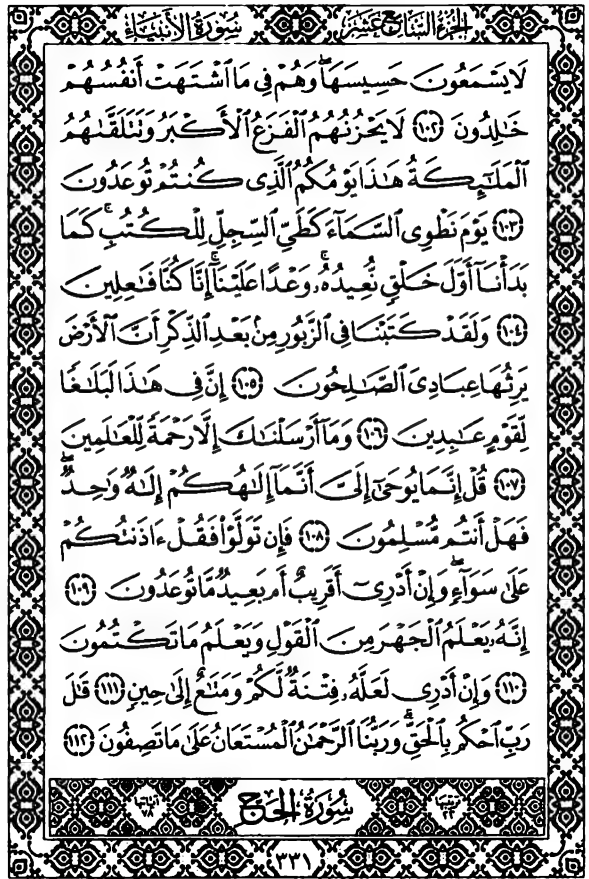 الجزء السابع عشر سورة الأنبياء
لَا يَسْمَعُونَ حَسِيسَهَا ۖ وَهُمْ فِي مَا اشْتَهَتْ أَنفُسُهُمْ
خَٰلِدُونَ ١٠٢ لَا يَحْزُنُهُمُ الْفَزَعُ الْأَكْبَرُ وَتَتَلَقَّىٰهُمُ
الْمَلَٰٓئِكَةُ هَٰذَا يَوْمُكُمُ الَّذِي كُنتُمْ تُوعَدُونَ
١٠٣ يَوْمَ نَطْوِي السَّمَآءَ كَطَيِّ السِّجِلِّ لِلْكُتُبِ ۚ كَمَا
بَدَأْنَآ أَوَّلَ خَلْقٍ نُّعِيدُهُۥ ۚ وَعْدًا عَلَيْنَآ ۚ إِنَّا كُنَّا فَٰعِلِينَ
١٠٤ وَلَقَدْ كَتَبْنَا فِي الزَّبُورِ مِنۢ بَعْدِ الذِّكْرِ أَنَّ الْأَرْضَ
يَرِثُهَا عِبَادِيَ الصَّٰلِحُونَ ١٠٥ إِنَّ فِي هَٰذَا لَبَلَٰغًا
لِّقَوْمٍ عَٰبِدِينَ ١٠٦ وَمَآ أَرْسَلْنَٰكَ إِلَّا رَحْمَةً لِّلْعَٰلَمِينَ
١٠٧ قُلْ إِنَّمَا يُوحَىٰٓ إِلَيَّ أَنَّمَآ إِلَٰهُكُمْ إِلَٰهٌ وَٰحِدٌ ۖ
فَهَلْ أَنتُم مُّسْلِمُونَ ١٠٨ فَإِن تَوَلَّوْا فَقُلْ ءَاذَنتُكُمْ
عَلَىٰ سَوَآءٍ ۖ وَإِنْ أَدْرِيٓ أَقَرِيبٌ أَم بَعِيدٌ مَّا تُوعَدُونَ ١٠٩
إِنَّهُۥ يَعْلَمُ الْجَهْرَ مِنَ الْقَوْلِ وَيَعْلَمُ مَا تَكْتُمُونَ
١١٠ وَإِنْ أَدْرِي لَعَلَّهُۥ فِتْنَةٌ لَّكُمْ وَمَتَٰعٌ إِلَىٰ حِينٍ ١١١ قَٰلَ
رَبِّ احْكُم بِالْحَقِّ ۗ وَرَبُّنَا الرَّحْمَٰنُ الْمُسْتَعَانُ عَلَىٰ مَا تَصِفُونَ ١١٢
ترتيبها ٢٢ سُورَةُ الحَجِّ آياتها ٧٨
٣٣١